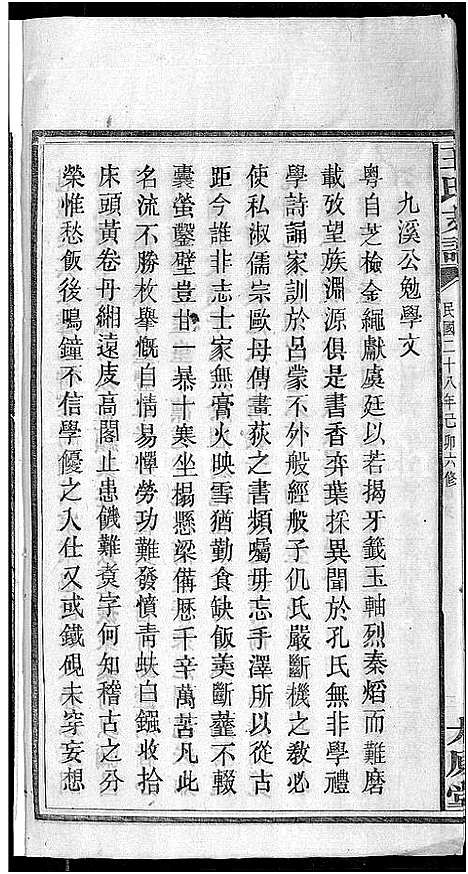 王氏支譜
民國二十八年己卯六修
九溪公勉學文
粵自芝檢金繩獻虞廷以若揭牙籤玉軸烈秦熖而難磨
載攷望族淵源俱是書香弃葉採異聞於孔氏無非學禮
學詩誦家訓於呂蒙不外般經般子仉氏嚴斷機之教必
使私淑儒宗歐母傳畫荻之書頻囑毋忘手澤所以從古
距今誰非志士家無膏火映雪猶勤食缺飯羹斷虀不輟
囊螢鑿壁豈甘一暴十寒坐榻懸梁備歷千辛萬苦凡此
名流不勝枚舉慨自情易憚勞功難發憤靑蚨白鏹收拾
床頭黃卷丹緗遠庋高閣止患饑難煑字何知稽古之分
榮惟愁飯後鳴鐘不信學優之入仕又或鐵硯未穿妄想